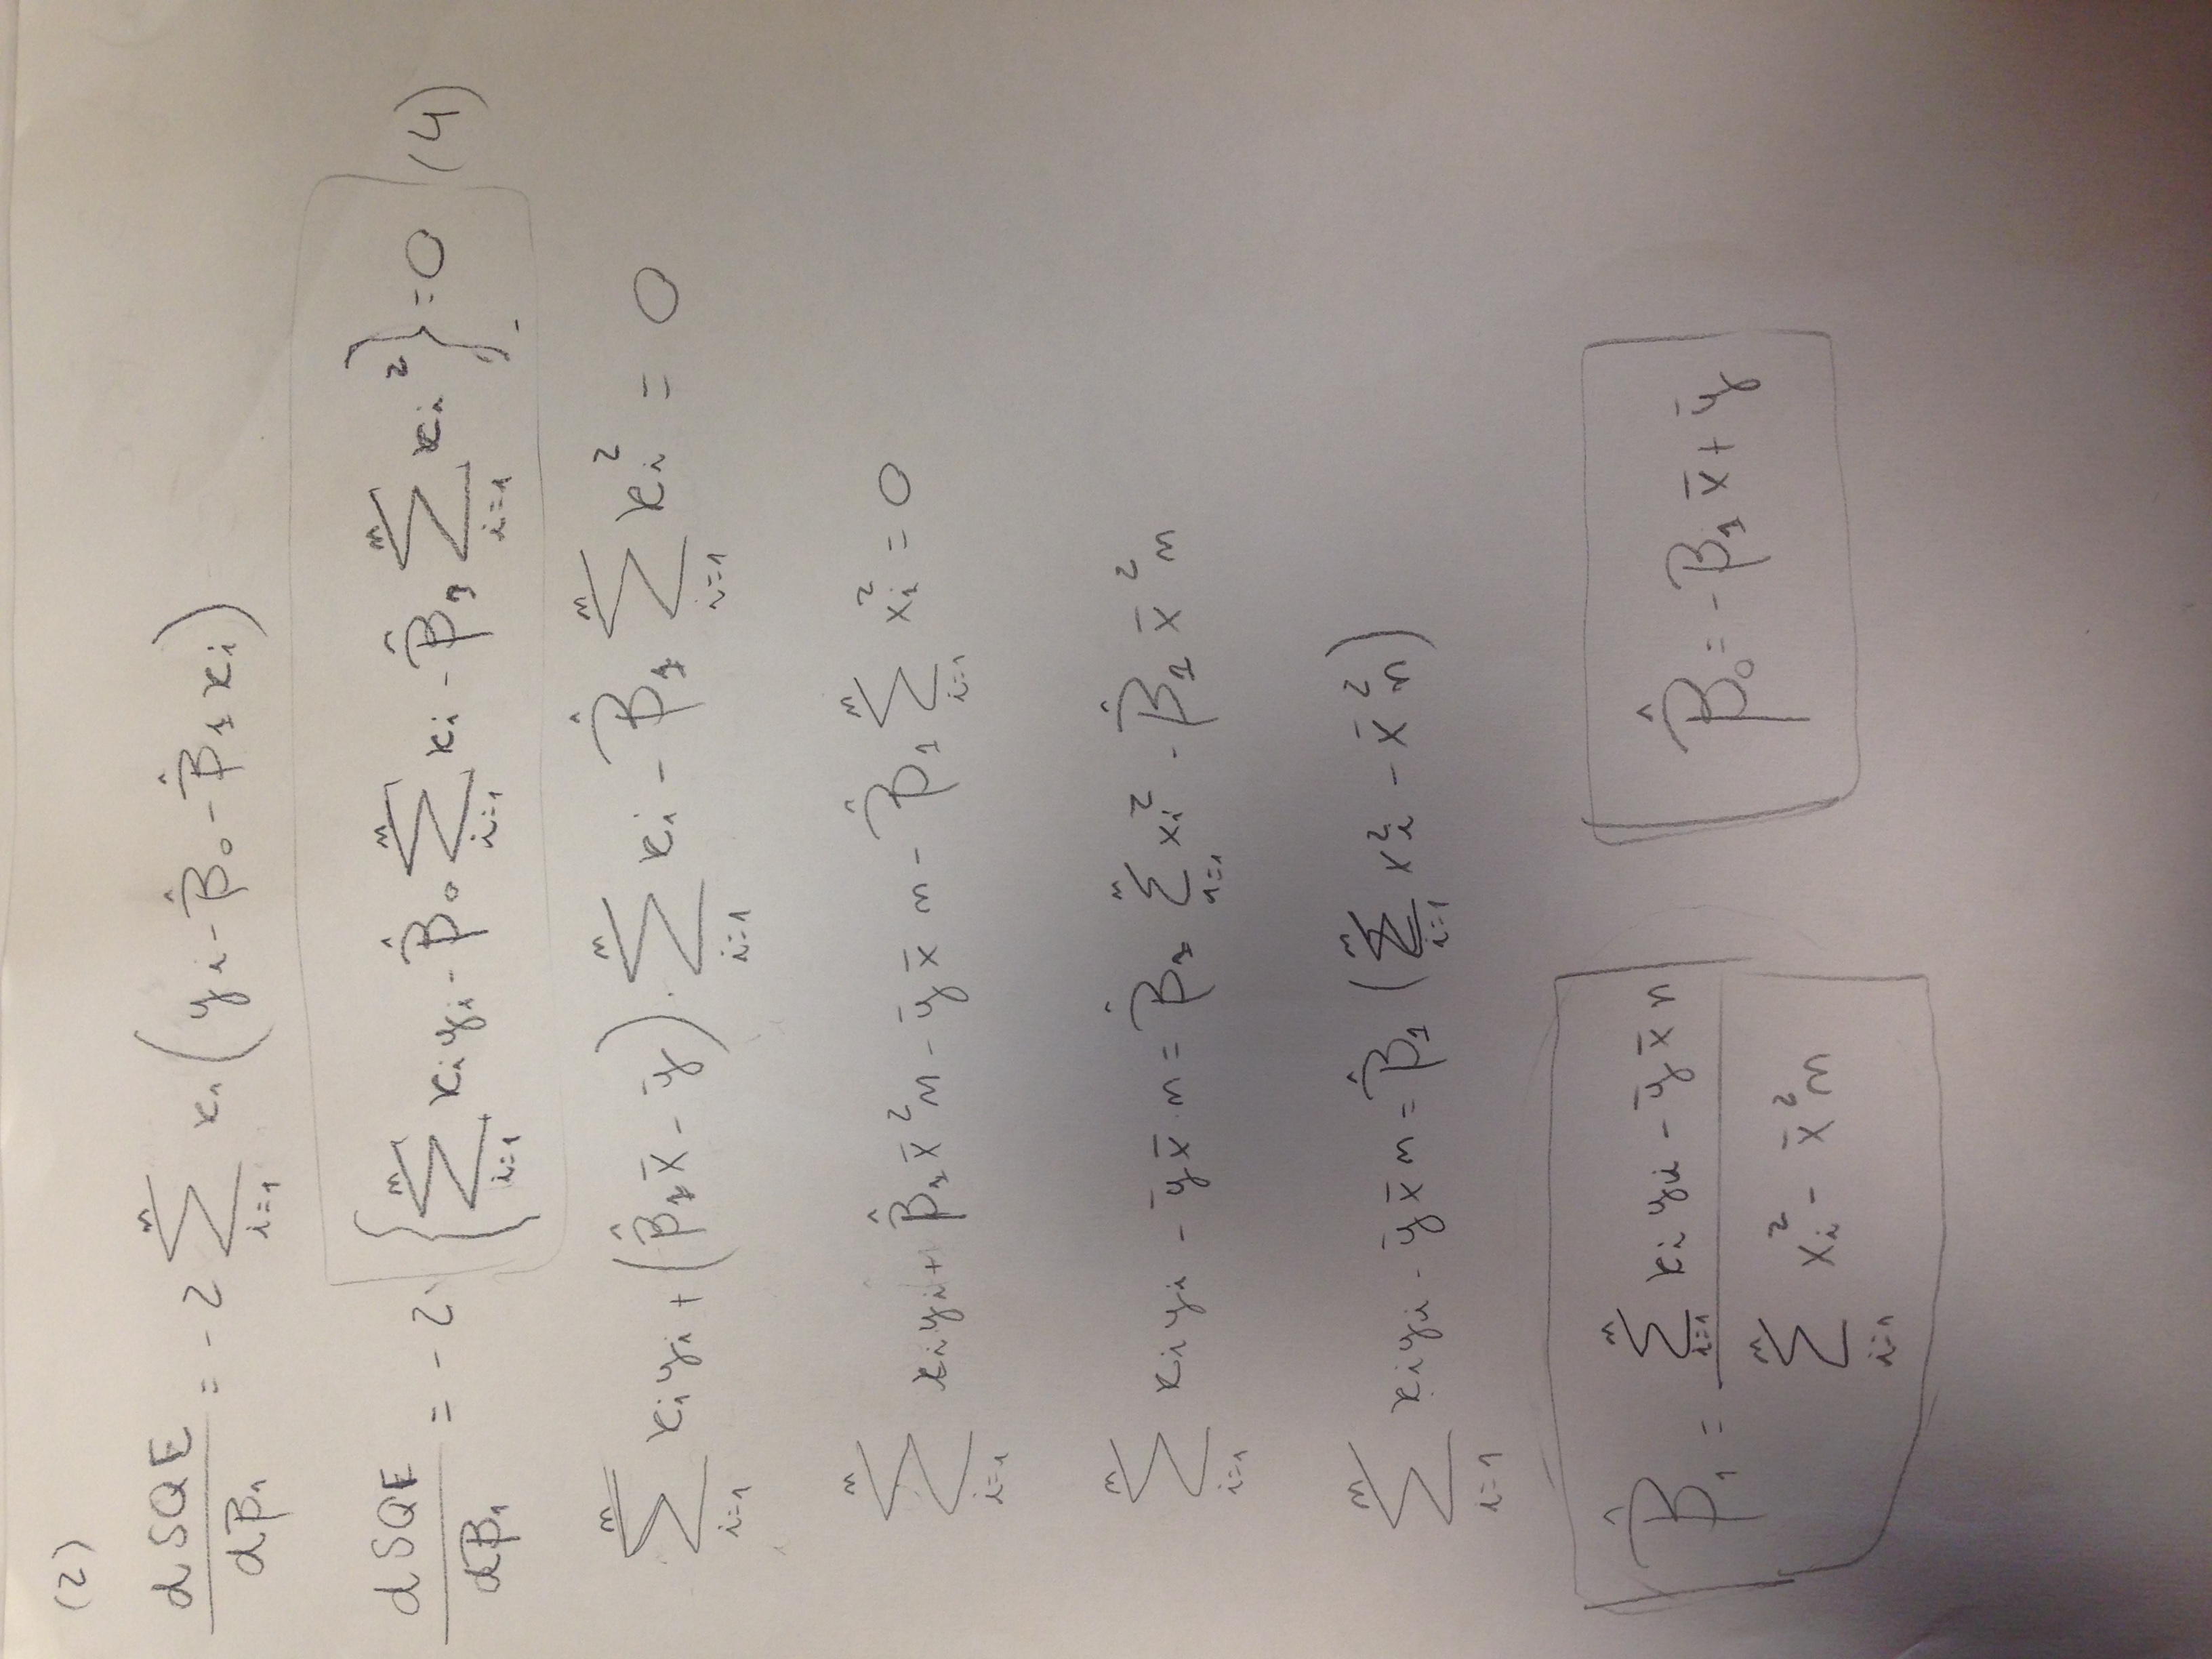 (2)
dSQE/dβ₁ = -2 ∑ᵢ₌₁ⁿ xᵢ (yᵢ - β̂₀ - β̂₁xᵢ)
dSQE/dβ₁ = -2· {∑ᵢ₌₁ⁿ xᵢyᵢ - β̂₀ ∑ᵢ₌₁ⁿ xᵢ - β̂₁ ∑ᵢ₌₁ⁿ xᵢ²} = 0 (4)
∑ᵢ₌₁ⁿ xᵢyᵢ + (β̂₁x̄ - ȳ) · ∑ᵢ₌₁ⁿ xᵢ - β̂₁ ∑ᵢ₌₁ⁿ xᵢ² = 0
∑ᵢ₌₁ⁿ xᵢyᵢ + β̂₁x̄²n - ȳx̄n - β̂₁ ∑ᵢ₌₁ⁿ xᵢ² = 0
∑ᵢ₌₁ⁿ xᵢyᵢ - ȳx̄·n = β̂₁ ∑ᵢ₌₁ⁿ xᵢ² - β̂₁x̄²n
∑ᵢ₌₁ⁿ xᵢyᵢ - ȳx̄n = β̂₁ (∑ᵢ₌₁ⁿ xᵢ² - x̄²n)
β̂₁ = (∑ᵢ₌₁ⁿ xᵢyᵢ - ȳx̄n) / (∑ᵢ₌₁ⁿ xᵢ² - x̄²n)
β̂₀ = -β₁x̄ + ȳ